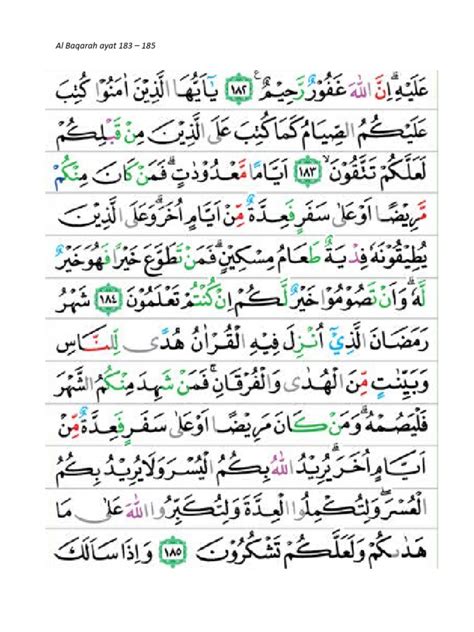 Al Baqarah ayat 183 – 185
عَلَيْهِ ۗ اِنَّ اللّٰهَ غَفُوْرٌ رَّحِيْمٌ ࣖ ١٨٢ يٰٓاَيُّهَا الَّذِيْنَ اٰمَنُوْا كُتِبَ
عَلَيْكُمُ الصِّيَامُ كَمَا كُتِبَ عَلَى الَّذِيْنَ مِنْ قَبْلِكُمْ
لَعَلَّكُمْ تَتَّقُوْنَۙ ١٨٣ اَيَّامًا مَّعْدُوْدٰتٍۗ فَمَنْ كَانَ مِنْكُمْ
مَّرِيْضًا اَوْ عَلٰى سَفَرٍ فَعِدَّةٌ مِّنْ اَيَّامٍ اُخَرَ ۗ وَعَلَى الَّذِيْنَ
يُطِيْقُوْنَهٗ فِدْيَةٌ طَعَامُ مِسْكِيْنٍۗ فَمَنْ تَطَوَّعَ خَيْرًا فَهُوَ خَيْرٌ
لَّهٗ ۗ وَاَنْ تَصُوْمُوْا خَيْرٌ لَّكُمْ اِنْ كُنْتُمْ تَعْلَمُوْنَ ١٨٤ شَهْرُ
رَمَضَانَ الَّذِيْٓ اُنْزِلَ فِيْهِ الْقُرْاٰنُ هُدًى لِّلنَّاسِ
وَبَيِّنٰتٍ مِّنَ الْهُدٰى وَالْفُرْقَانِۚ فَمَنْ شَهِدَ مِنْكُمُ الشَّهْرَ
فَلْيَصُمْهُ ۗ وَمَنْ كَانَ مَرِيْضًا اَوْ عَلٰى سَفَرٍ فَعِدَّةٌ مِّنْ
اَيَّامٍ اُخَرَ ۗ يُرِيْدُ اللّٰهُ بِكُمُ الْيُسْرَ وَلَا يُرِيْدُ بِكُمُ
الْعُسْرَ ۖ وَلِتُكْمِلُوا الْعِدَّةَ وَلِتُكَبِّرُوا اللّٰهَ عَلٰى مَا
هَدٰىكُمْ وَلَعَلَّكُمْ تَشْكُرُوْنَ ١٨٥ وَاِذَا سَاَلَكَ